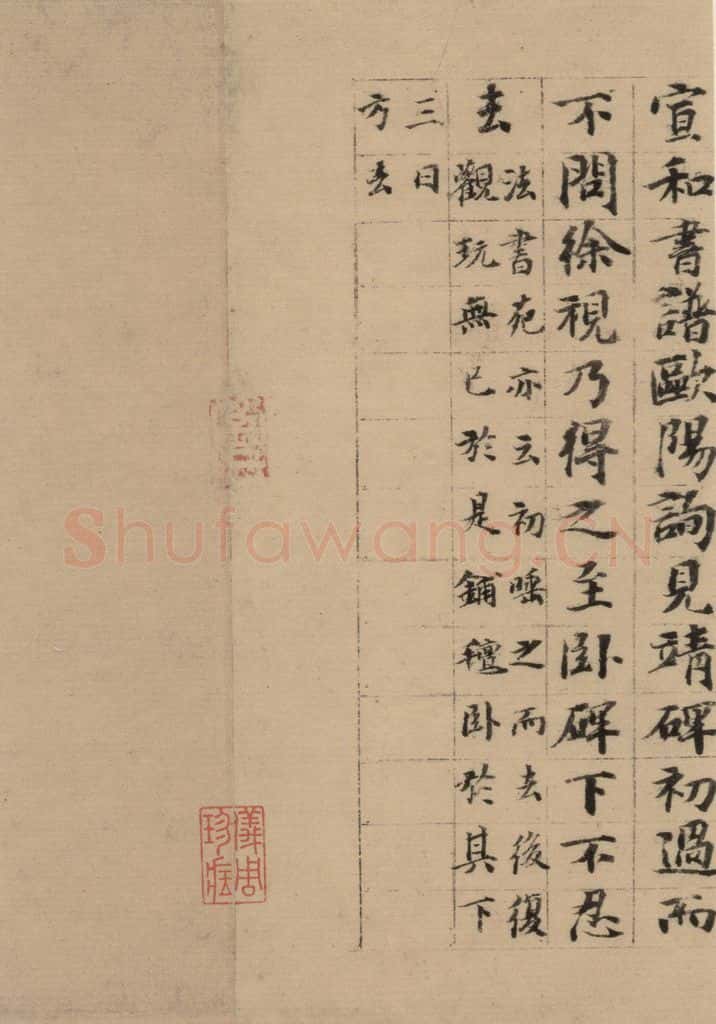 宣和書譜歐陽詢見靖碑初過而
不問徐視乃得之至卧碑下不忍
去
法書苑亦云初唾之而去後復
觀玩無已於是鋪氊卧於其下
三日
方去
儀周
珍藏
Shufawang.CN